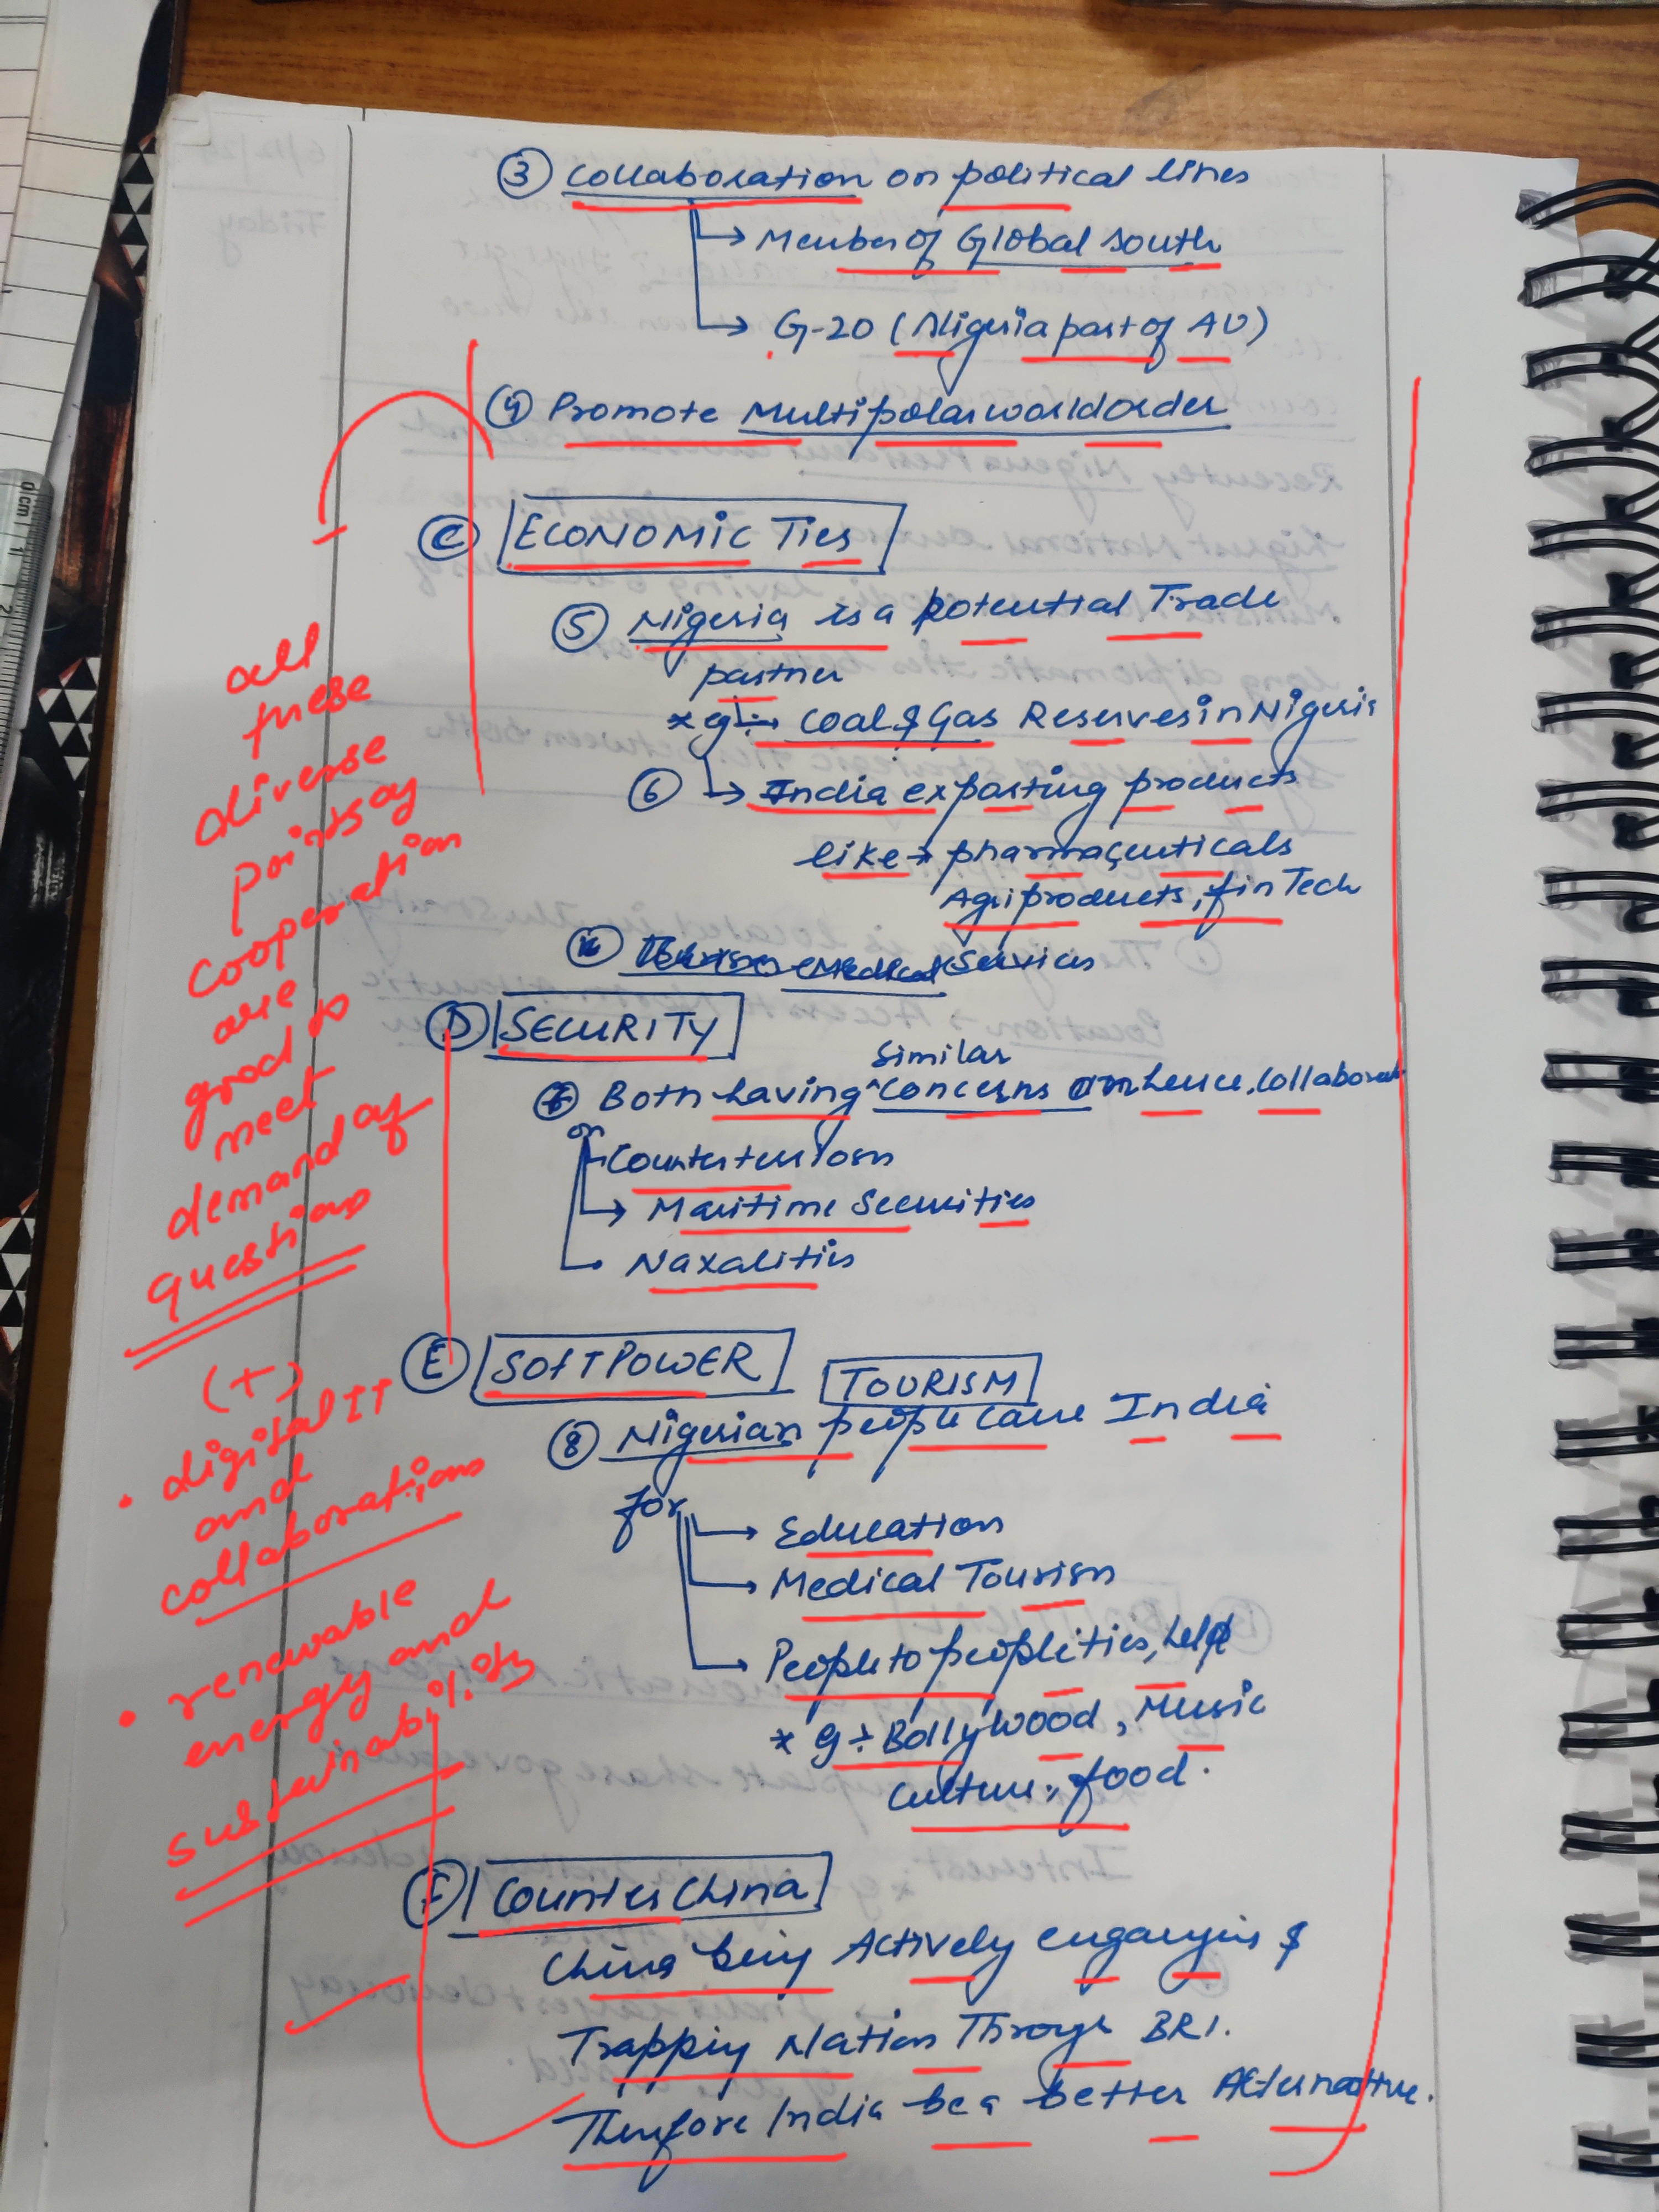 ③ Collaboration on political lines
→ Member of Global South
→ G-20 (Nigeria part of AU)
④ Promote Multipolar world order
Ⓒ ECONOMIC Ties
⑤ Nigeria is a potential Trade
partner
* eg:→ Coal & Gas Reserves in Nigeria
⑥ → India exporting products
like → pharmaceuticals
Agri products, fin Tech
Services
Ⓓ SECURITY
Similar
Both having ^ Concerns hence, Collaborat
on
Counter terrorism
→ Maritime Securities
Naxalities
Ⓔ SOFT POWER
TOURISM
⑧ Nigerian people came India
for
→ Education
→ Medical Tourism
→ People to people ties, help
* eg ÷ Bollywood, Music
Culture, food.
Ⓕ Counter China
China being Actively engaging &
Trapping Nation Through BRI.
Therefore India be a better Alternative.
all
these
diverse
points of
cooperation
are
good to
meet
demand of
questions
(+)
• digital IT
and
collaborations
• renewable
energy and
sustainability
0cm 1 2